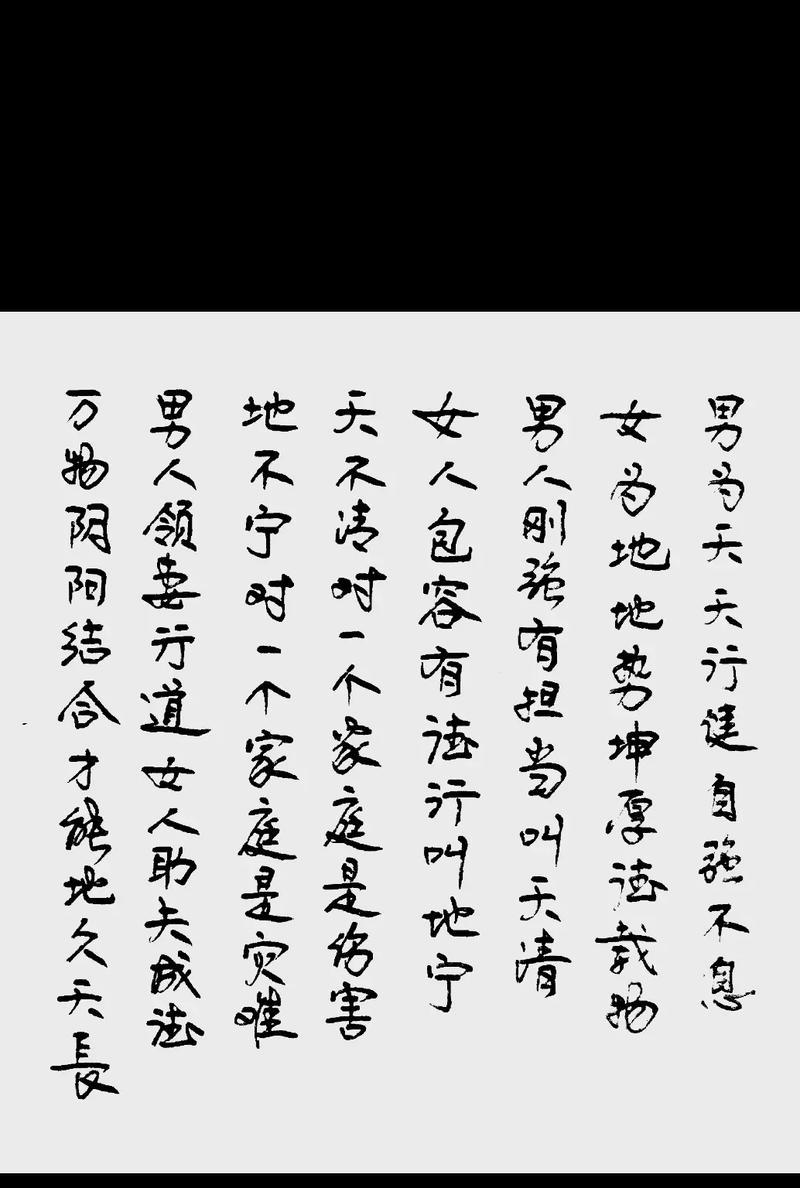 男为天天行健自强不息
女为地地势坤厚德载物
男人刚强有担当叫天清
女人包容有德行叫地宁
天不清对一个家庭是伤害
地不宁对一个家庭是灾难
男人领妻行道女人助夫成德
万物阴阳结合才能地久天長